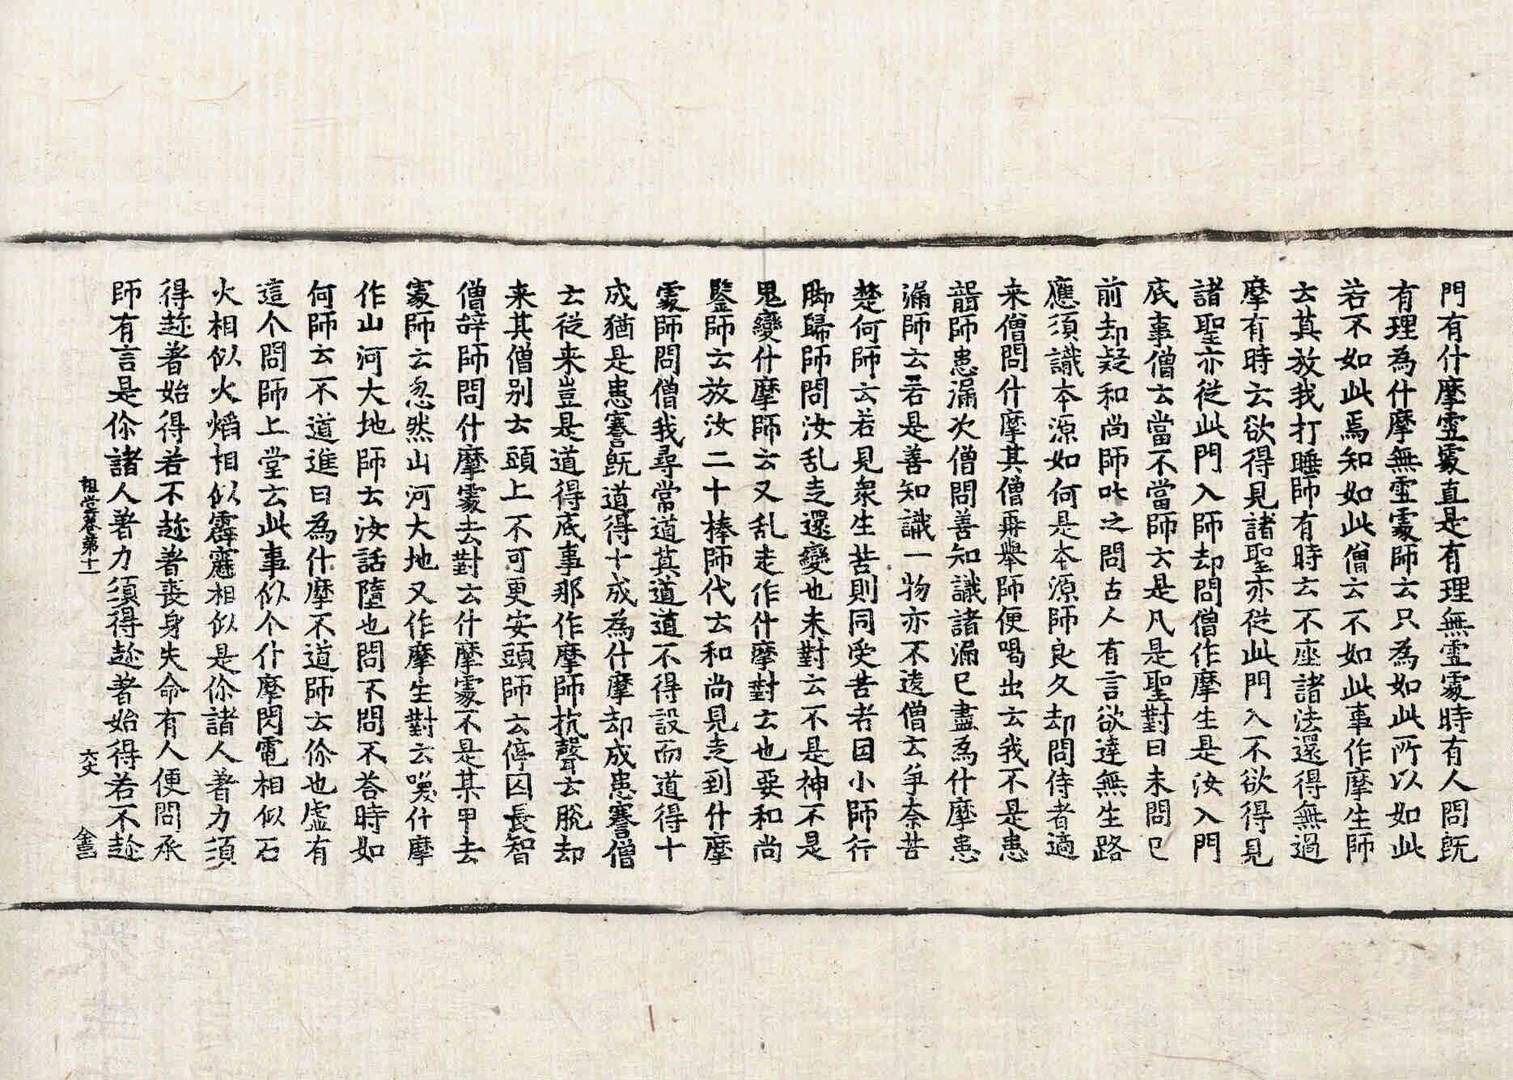 門有什摩霊䖏直是有理無霊䖏時有人問旣
有理為什摩無霊䖏師云只為如此所以如此
若不如此焉知如此僧云不如此事作摩生師
云莫放我打睡師有時云不座諸法還得無過
摩有時云欲得見諸聖亦從此門入不欲得見
諸聖亦從此門入師却問僧作摩生是汝入門
底事僧云當不當師云是凡是聖對曰未問已
前却疑和尚師叱之問古人有言欲達無生路
應須識本源如何是本源師良久却問侍者適
来僧問什摩其僧再舉師便喝出云我不是患
聾師患漏次僧問善知識諸漏已盡為什摩患
漏師云若是善知識一物亦不遠僧云爭奈苦
楚何師云若見衆生苦則同受苦者因小師行
脚歸師問汝乱走還變也未對云不是神不是
鬼變什摩師云又乱走作什摩對云也要和尚
鑒師云放汝二十棒師代云和尚見走到什摩
䖏師問僧我尋常道莫道道不得設而道得十
成猶是患謇旣道得十成為什摩却成患謇僧
云從来豈是道得底事那作摩師抗聲云脫却
来其僧別云頭上不可更安頭師云停囚長智
僧辝師問什摩䖏去對云什摩䖏不是某甲去
䖏師云忽然山河大地又作摩生對云喚什摩
作山河大地師云汝話墮也問不問不荅時如
何師云不道進曰為什摩不道師云你也虛有
這个問師上堂云此事似个什麼閃電相似石
火相似火焰相似霹靂相似是你諸人著力須
得趂著始得若不趂著喪身失命有人便問承
師有言是你諸人著力須得趂著始得若不趂
祖堂卷第十一　六丈